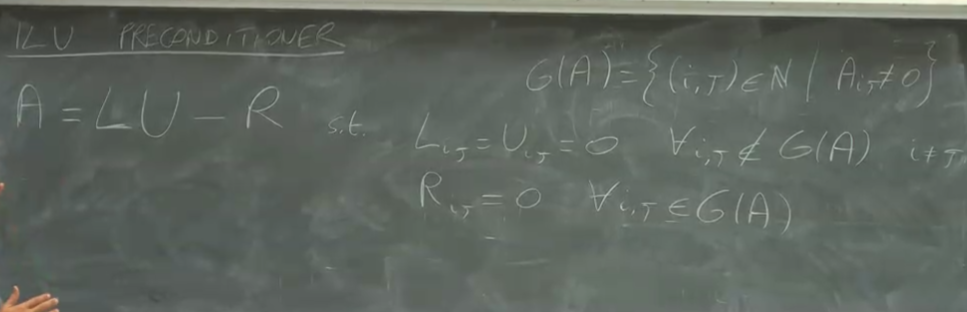 ILU PRECONDITIONER
G(A)={(i,J)∈N | A_{i,J}≠0}
A = LU - R s.t. L_{i,J}=U_{i,J}=0 ∀_{i,J}∉G(A) i≠J
R_{i,J}=0 ∀_{i,J}∈G(A)